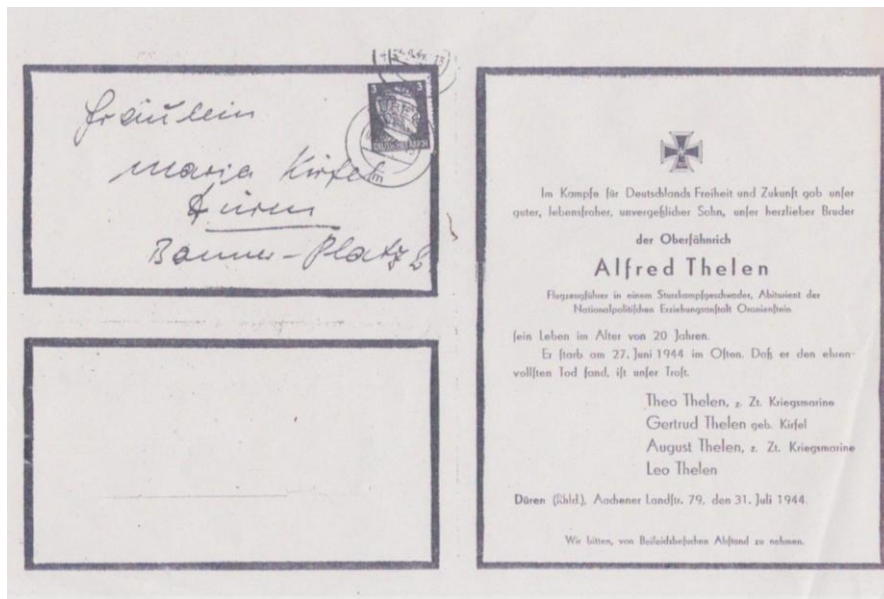 Fräulein
Maria Kirfel
Düren
Bonner-Platz 2
3 3
DEUTSCHES REICH
Im Kampfe für Deutschlands Freiheit und Zukunft gab unser
guter, lebensfroher, unvergeßlicher Sohn, unser herzlieber Bruder
der Oberfähnrich
Alfred Thelen
Flugzeugführer in einem Sturzkampfgeschwader, Abiturient der
Nationalpolitischen Erziehungsanstalt Oranienstein
sein Leben im Alter von 20 Jahren.
Er starb am 27. Juni 1944 im Osten. Daß er den ehren-
vollsten Tod fand, ist unser Trost.
Theo Thelen, z. Zt. Kriegsmarine
Gertrud Thelen geb. Kirfel
August Thelen, z. Zt. Kriegsmarine
Leo Thelen
Düren (Rhld.), Aachener Landstr. 79, den 31. Juli 1944.
Wir bitten, von Beileidsbesuchen Abstand zu nehmen.